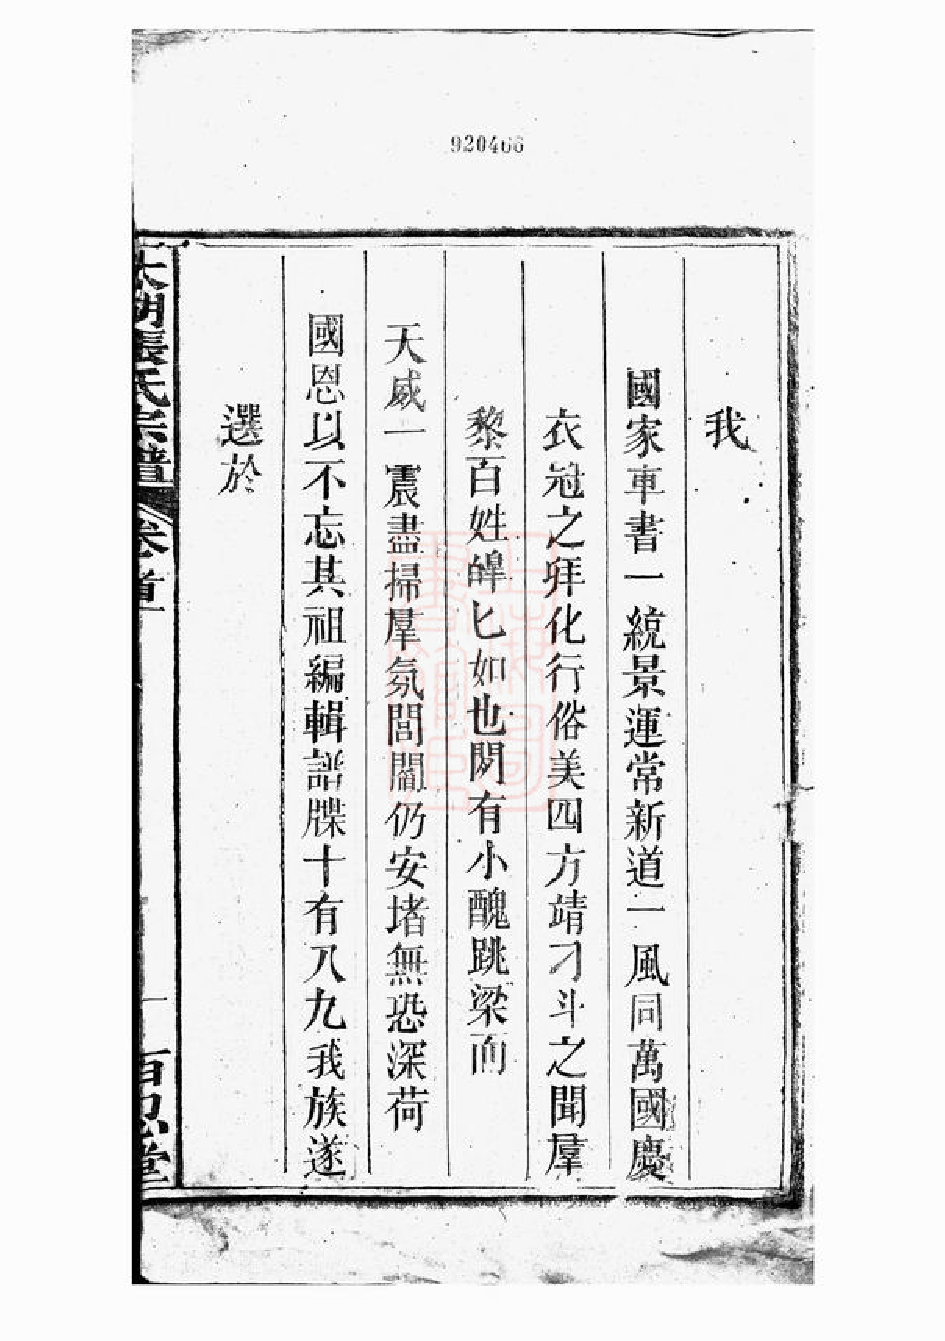 920466
我
國家車書一統景運常新道一風同萬國慶
衣冠之拜化行俗美四方靖刁斗之聞羣
黎百姓皥匕如也閒有小醜跳梁而
天威一震盡掃羣氛閭閻仍安堵無恐深荷
國恩以不忘其祖編輯譜牒十有八九我族遂
選於
太湖張氏宗譜 卷首 一 百忍堂